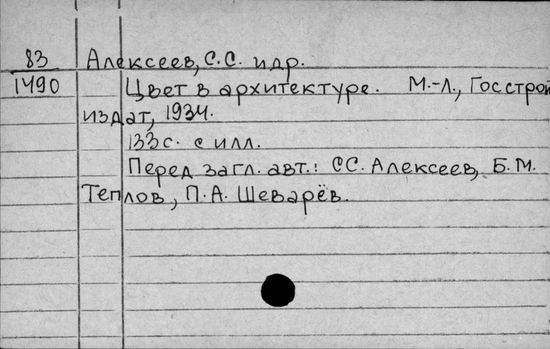 83 Алексеев, С.С. и др.
1490 Цвет в архитектуре. М.-Л., Госстрой
издат, 1934.
133с. с илл.
Перед загл. авт.: С.С. Алексеев, Б.М.
Теплов, П.А. Шеварёв.